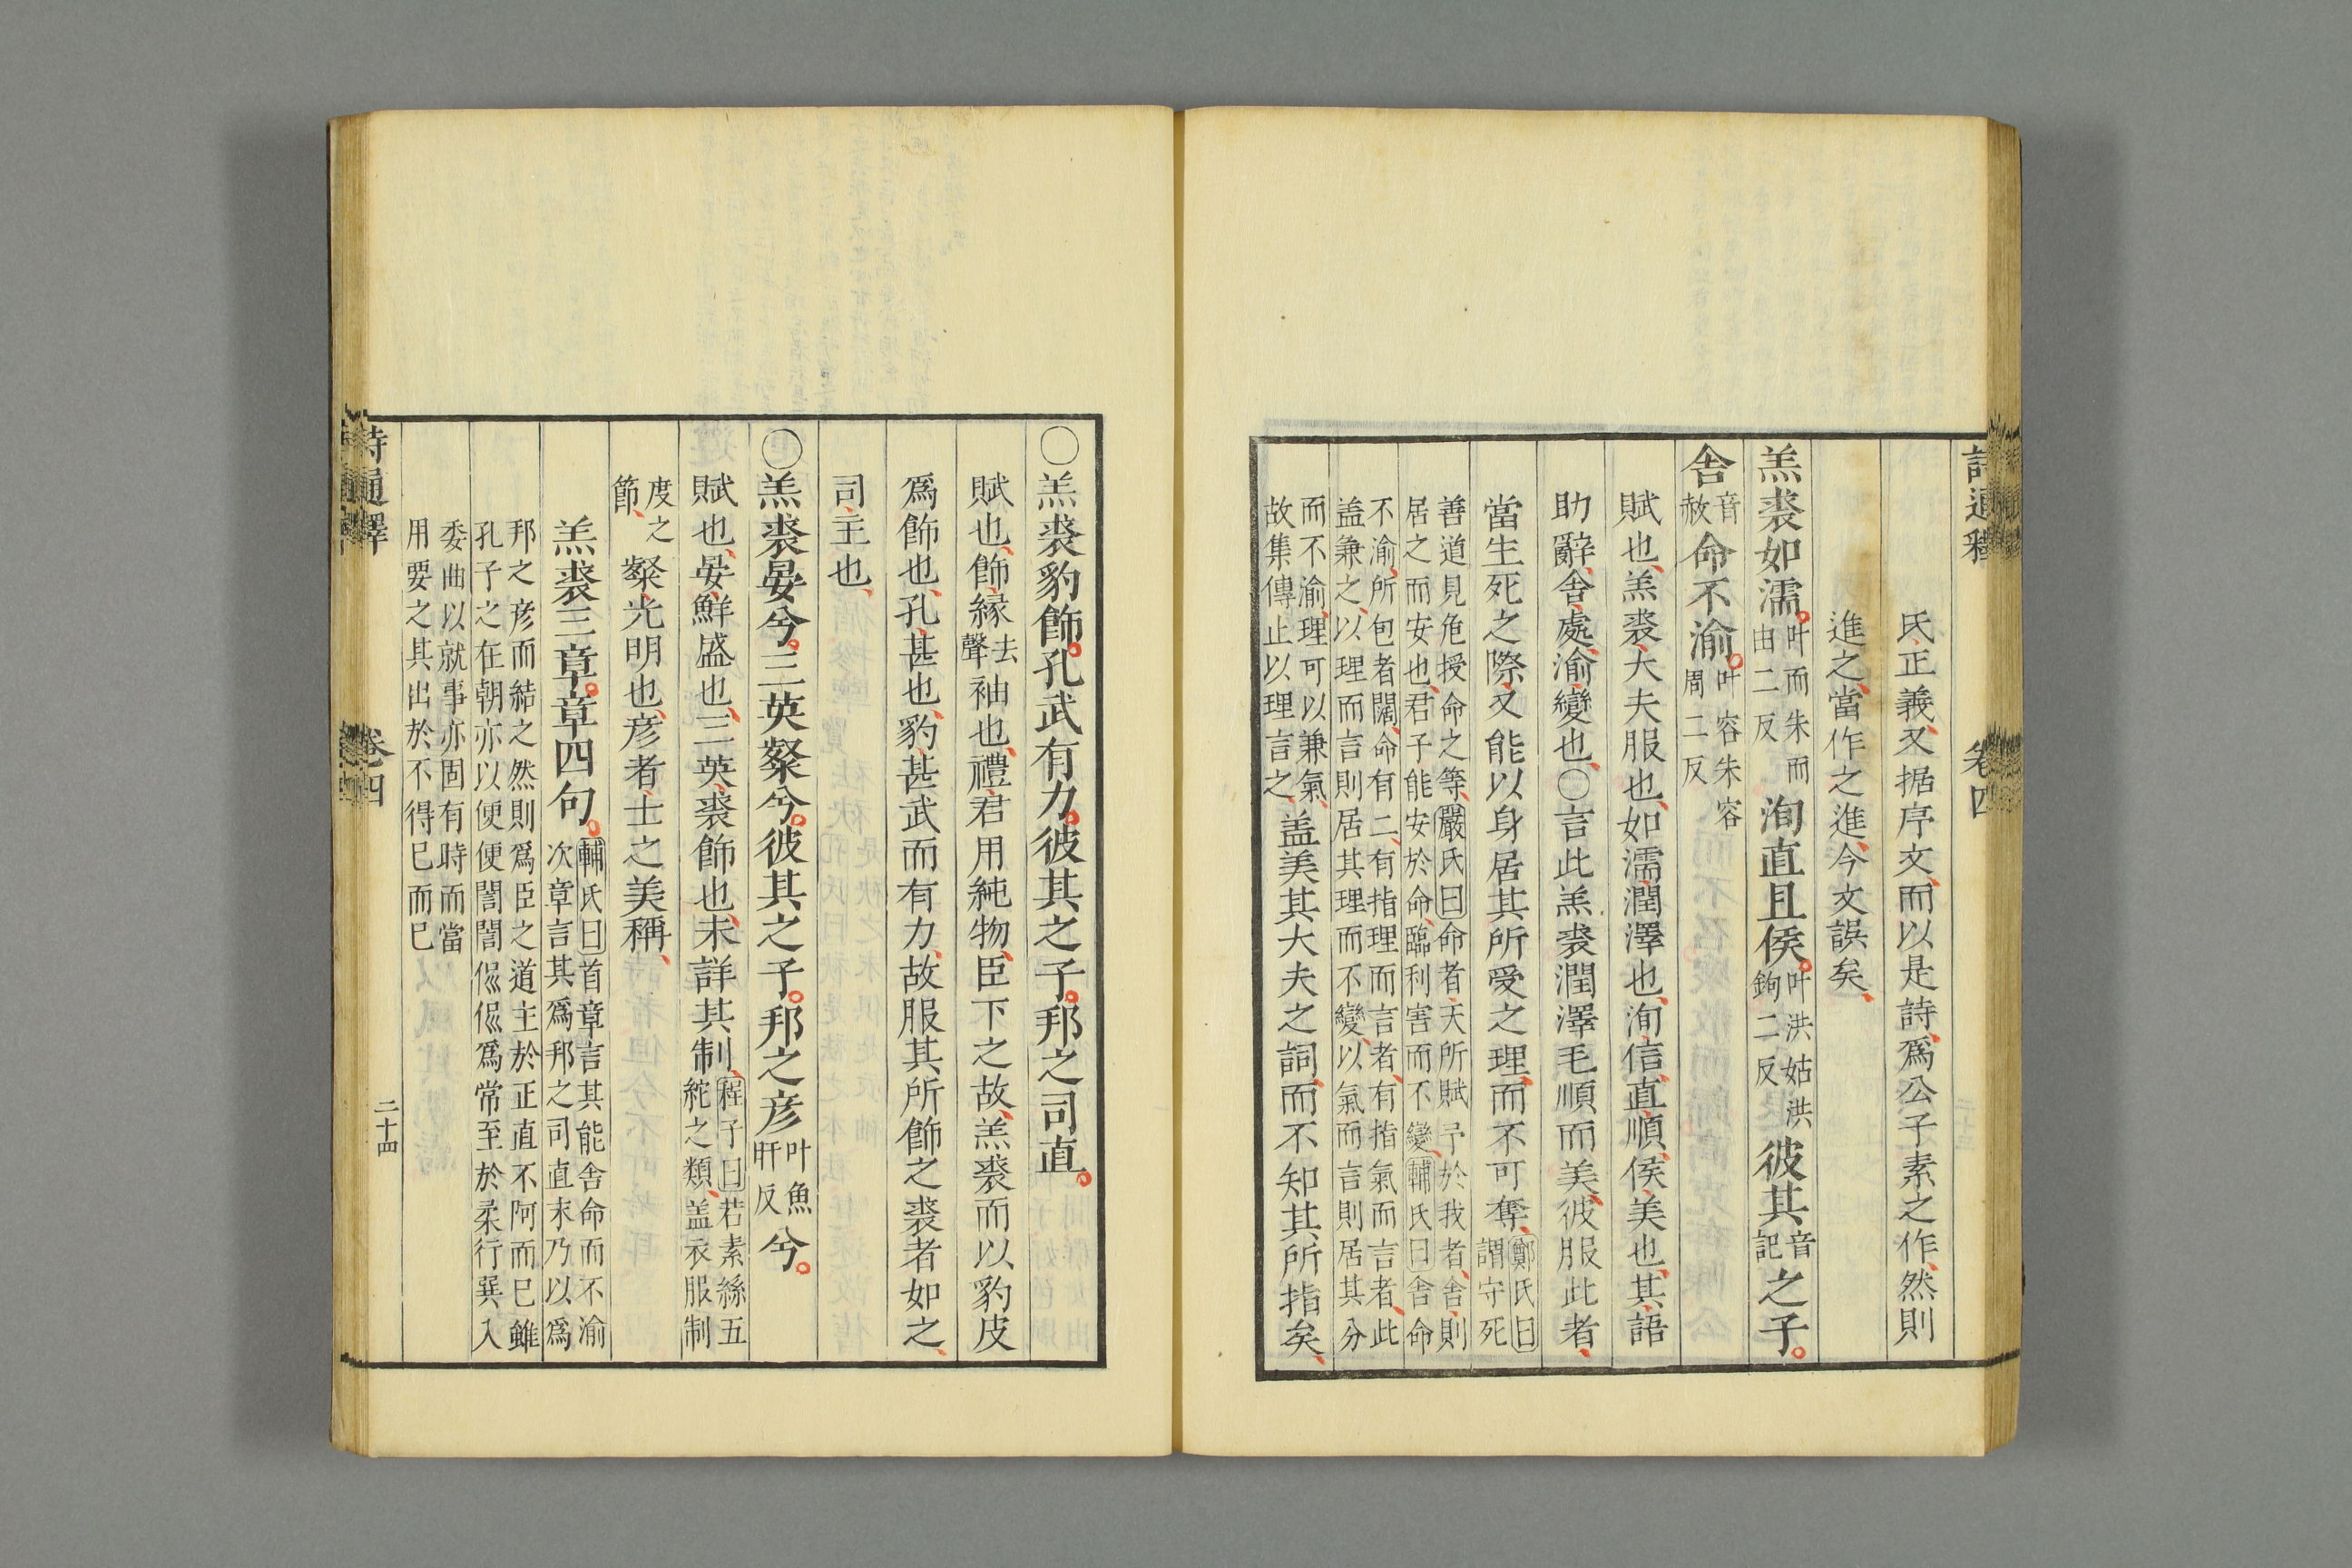 詩通釋 卷四
氏正義又据序文而以是詩爲公子素之作然則
進之當作之進今文誤矣
羔裘如濡叶而朱而由二反洵直且侯叶洪姑洪鉤二反彼其音記之子
舍音赦命不渝叶容朱容周二反
賦也羔裘大夫服也如濡潤澤也洵信直順侯美也其語
助辭舍處渝變也○言此羔裘潤澤毛順而美彼服此者
當生死之際又能以身居其所受之理而不可奪鄭氏曰謂守死
善道見危授命之等嚴氏曰命者天所賦予於我者舍則
居之而安也君子能安於命臨利害而不變輔氏曰舍命
不渝所包者闊命有二有指理而言者有指氣而言者此
盖兼之以理而言則居其理而不變以氣而言則居其分
而不渝理可以兼氣故集傳止以理言之盖美其大夫之詞而不知其所指矣
○羔裘豹飾孔武有力彼其之子邦之司直
賦也飾緣去聲袖也禮君用純物臣下之故羔裘而以豹皮
爲飾也孔甚也豹甚武而有力故服其所飾之裘者如之
司主也
○羔裘晏兮三英粲兮彼其之子邦之彦叶魚旰反兮
賦也晏鮮盛也三英裘飾也未詳其制程子曰若素絲五紽之類盖衣服制
度之節粲光明也彦者士之美稱
羔裘三章章四句輔氏曰首章言其能舍命而不渝次章言其爲邦之司直末乃以爲
邦之彦而結之然則爲臣之道主於正直不阿而已雖
孔子之在朝亦以便便誾誾侃侃爲常至於柔行巽入
委曲以就事亦固有時而當
用要之其出於不得已而已
詩通釋 卷四 二十四